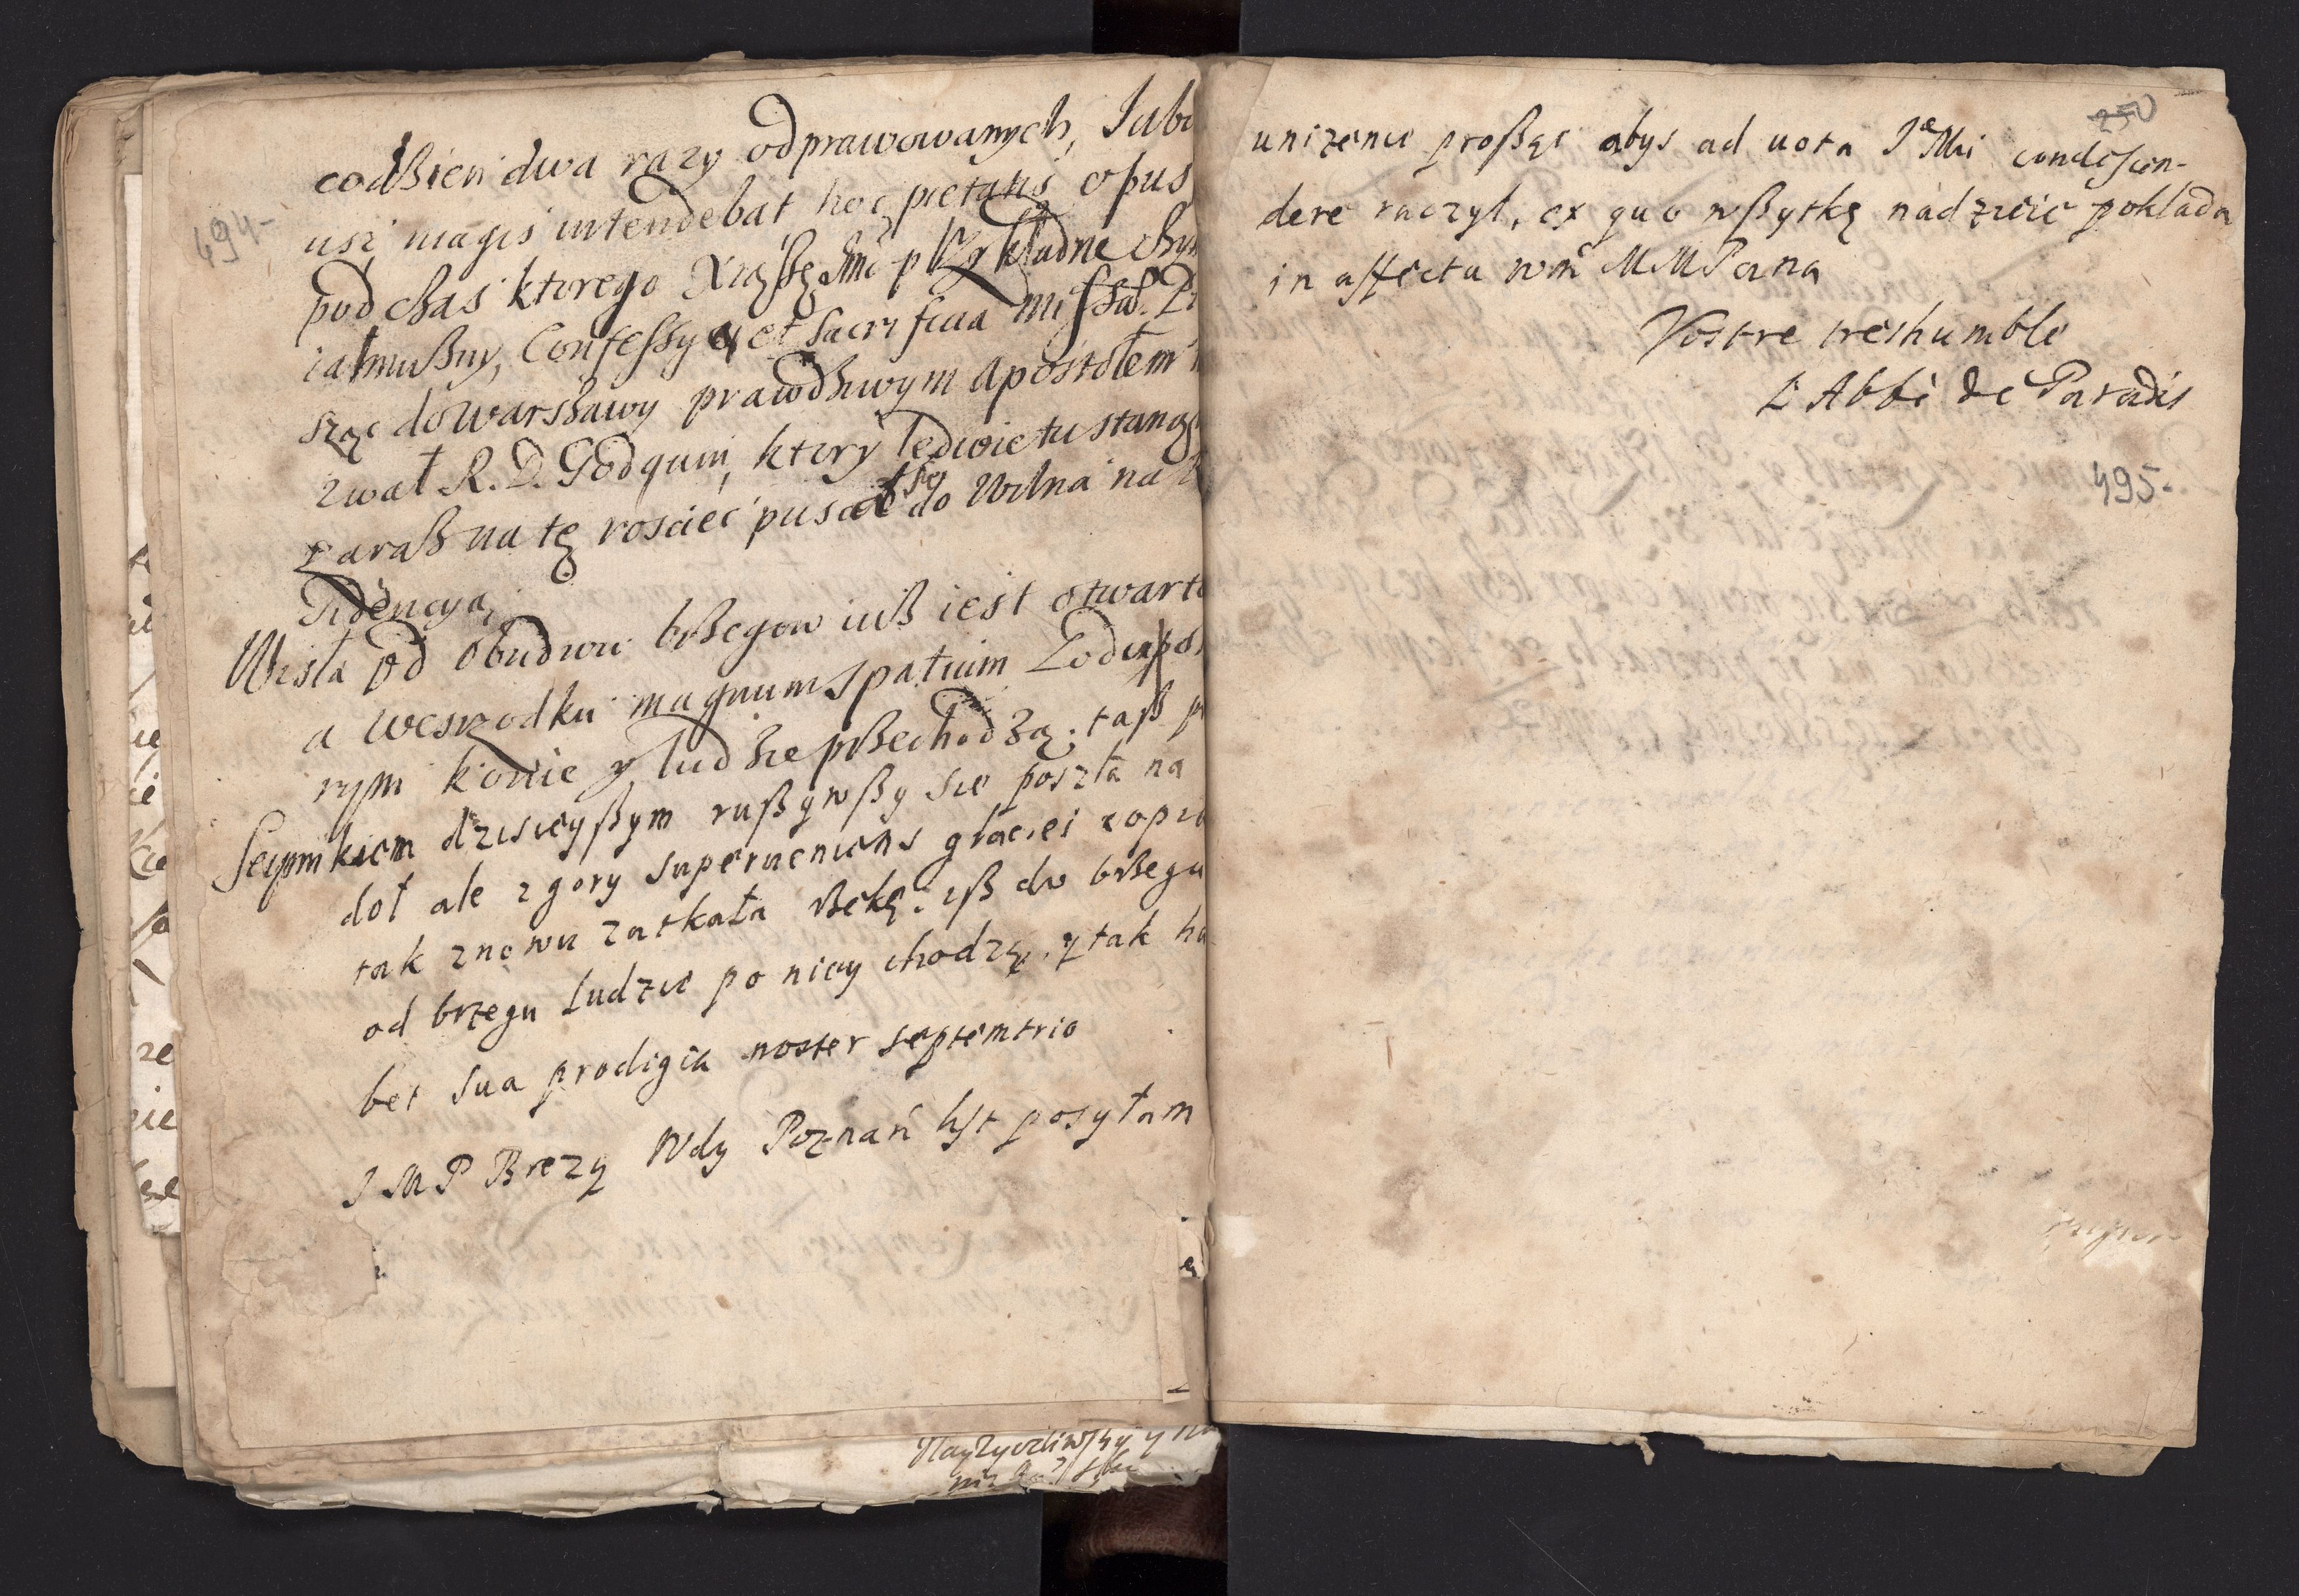 494-
codßien dwa razy odprawowanych, Iubi
usz magis intendebat hoc pietatis opus
pod chas ktorego Xiąßę Jmć przykładne
iałmußny, Confeßye et sacrificia
sząc do Warszawy prawdziwym Apostołem
zwał R. D. Godquin, ktory ledwie tu stanął
zaraß na tę roscieć puscił się do Wilna na
Wisła od obudwu brßegow iuß iest otwarta
a weszrodku magnum spatium Lodu
rym konie y ludzie prßechodzą; taß
Seymikiem dzisieyßym rußywßy sie poszła na
doł ale z gory superueniens glaciei copia
tak znowu zatkała rßekę. iß do brßegu
od brzegu Ludzie po niey chodzą. y tak ha
bet sua prodigia noster septemtrio
J M P Brezy Wdy Poznań list posyłam
Nayzyczliwszy y
250
unizenie proßąc abys ad uota J Mci condescen-
dere raczył, ex quo wßytkę nádzieie pokłada
in affectu wm MMPana
Vostre treshumble
L'Abbé de Paradis
495-